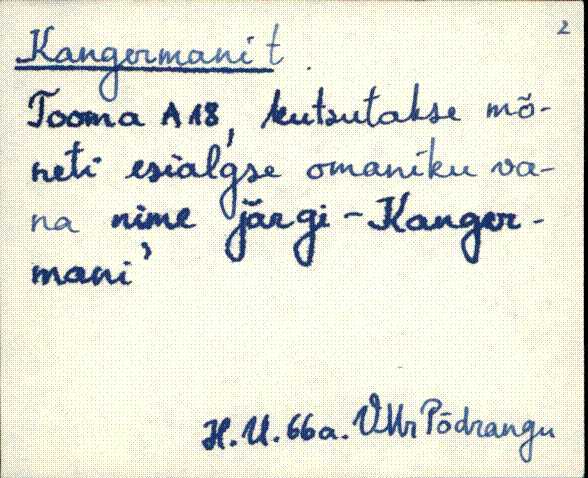 2
Kangermani t.
Tooma A18, kutsutakse mõ-
neti esialgse omaniku va-
na nime järgi - Kanger-
mani'
H.U. 66a. VMr Põdrangu